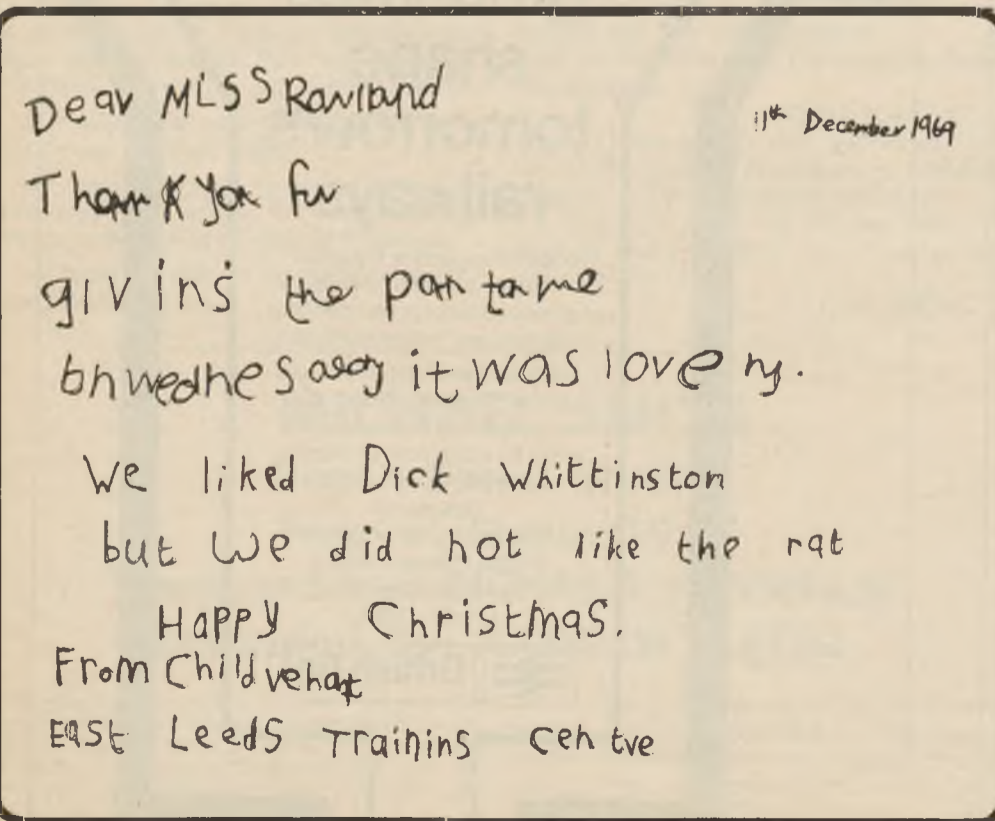 Dear MISS Rowland
11th December 1969
Thank you for
giving the pantome
on wednesday it was lovely.
We liked Dick Whittinston
but we did not like the rat
Happy Christmas.
From Children at
East Leeds Trainins Centre